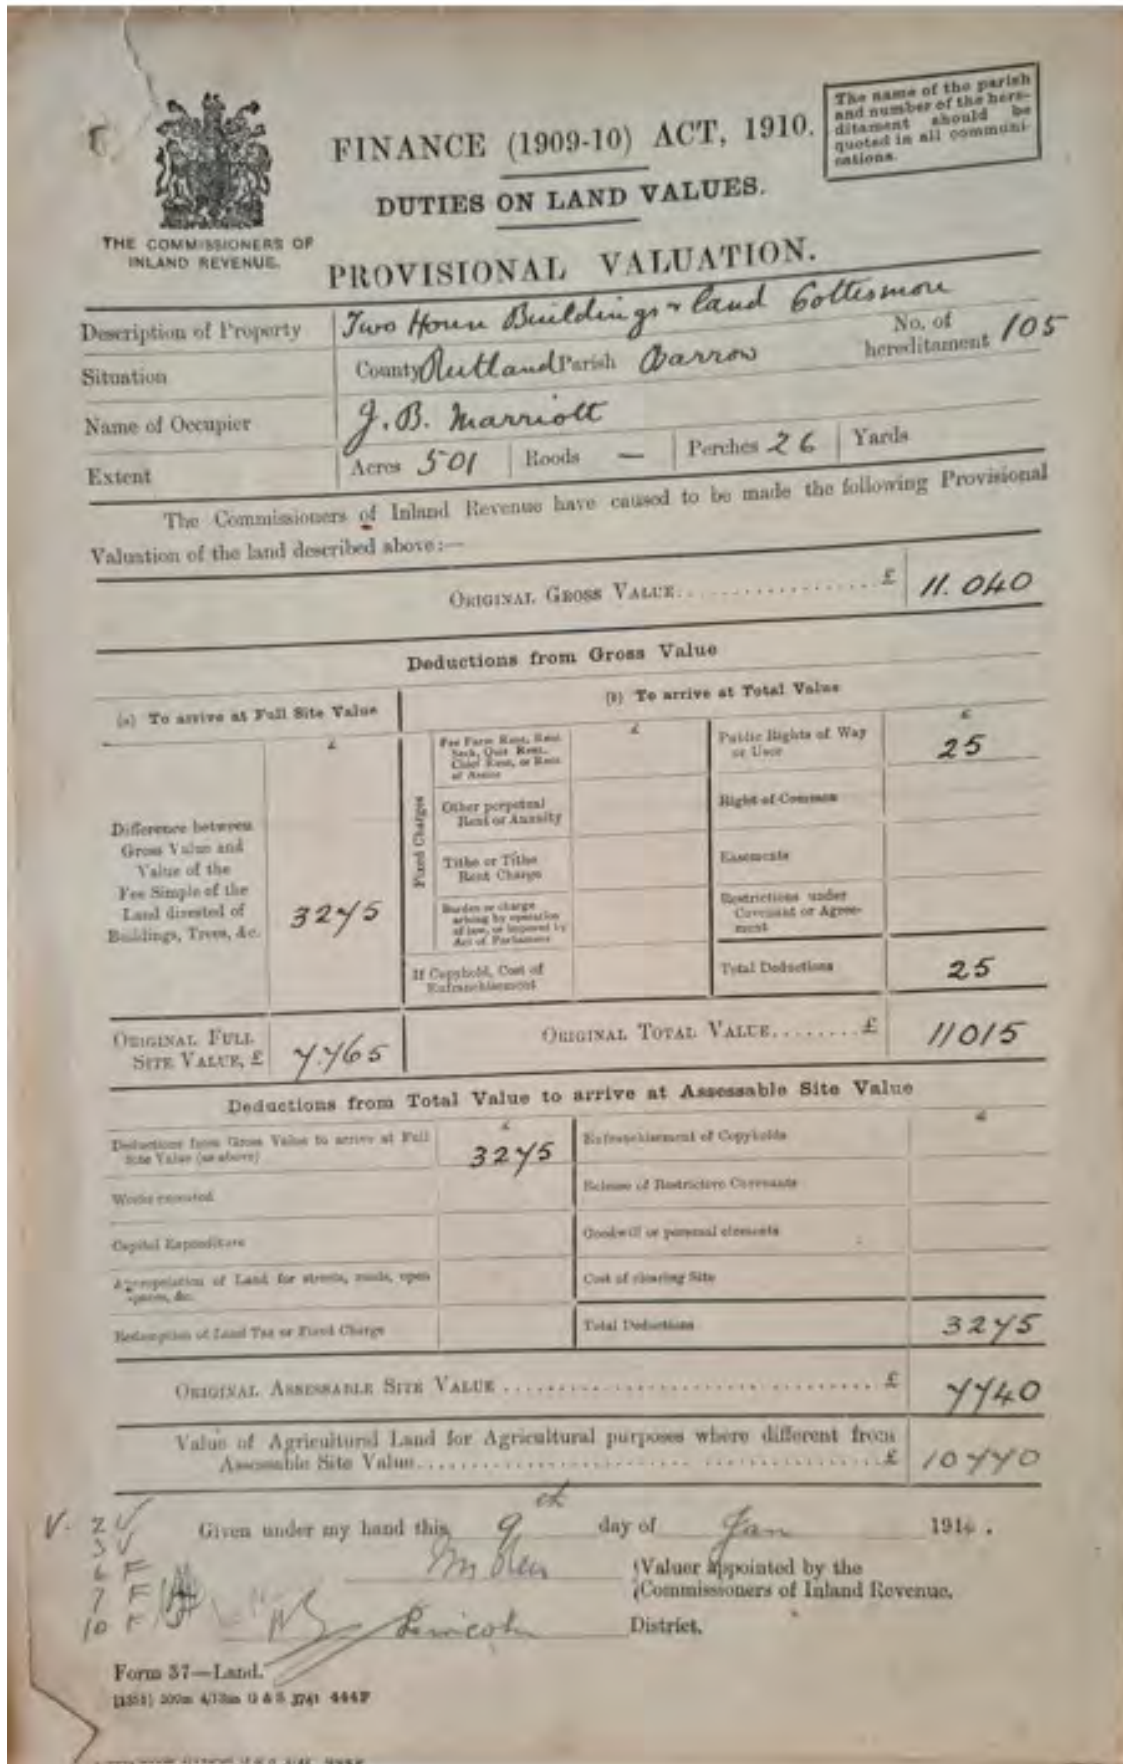 The name of the parish
and number of the here-
ditament should be
quoted in all communi-
cations.
FINANCE (1909-10) ACT, 1910.
DUTIES ON LAND VALUES.
THE COMMISSIONERS OF
INLAND REVENUE.
PROVISIONAL VALUATION.
Description of Property Two House Buildings & land Cottesmore
Situation County Rutland Parish Barrow No. of hereditament 105
Name of Occupier J. B. Marriott
Extent Acres 501 Roods — Perches 26 Yards
The Commissioners of Inland Revenue have caused to be made the following Provisional
Valuation of the land described above:—
ORIGINAL GROSS VALUE £ 11.040
Deductions from Gross Value
(a) To arrive at Full Site Value
(b) To arrive at Total Value
£ £ £
Difference between
Gross Value and
Value of the
Fee Simple of the
Land divested of
Buildings, Trees, &c.
3275
Fixed Charges
Fee Farm Rent, Rent
Seck, Quit Rent,
Chief Rent, or Rent
of Assize
Other perpetual
Rent or Annuity
Tithe or Tithe
Rent Charge
Burden or charge
arising by operation
of law, or imposed by
Act of Parliament
If Copyhold, Cost of
Enfranchisement
Public Rights of Way
or User
25
Right of Common
Easements
Restrictions under
Covenant or Agree-
ment
Total Deductions 25
ORIGINAL FULL
SITE VALUE, £ 7.765
ORIGINAL TOTAL VALUE........£ 11015
Deductions from Total Value to arrive at Assessable Site Value
£ £
Deductions from Gross Value to arrive at Full
Site Value (as above)
3275
Works executed
Capital Expenditure
Appropriation of Land for streets, roads, open
spaces, &c.
Redemption of Land Tax or Fixed Charge
Enfranchisement of Copyholds
Release of Restrictive Covenants
Goodwill or personal elements
Cost of clearing Site
Total Deductions 3275
ORIGINAL ASSESSABLE SITE VALUE £ 7740
Value of Agricultural Land for Agricultural purposes where different from
Assessable Site Value £ 10770
V. 2 V
3 V
6 F
7 F
10 F
Given under my hand this 9th day of Jan 1914.
Valuer appointed by the
Commissioners of Inland Revenue.
Lincoln District.
Form 37—Land.